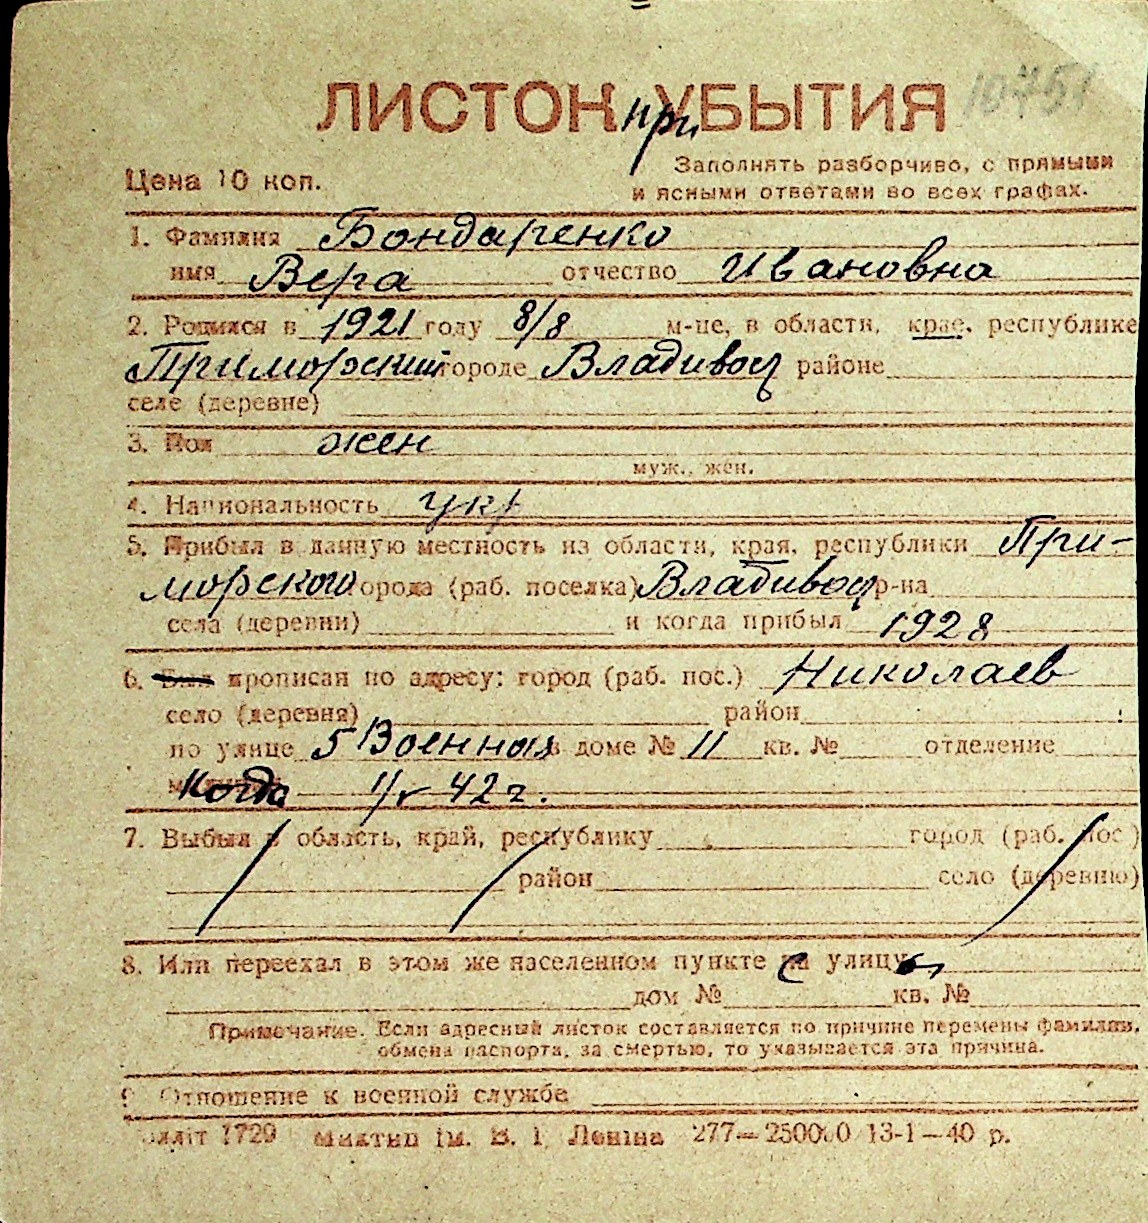 10751
ЛИСТОК при УБЫТИЯ
Заполнять разборчиво, с прямыми
Цена 10 коп.
и ясными ответами во всех графах.
1. Фамилия Бондаренко
имя Вера отчество Ивановна
2. Родился в 1921 году 8/8 м-це, в области, крае, республике
Приморский городе Владивост районе
селе (деревне)
3. Пол жен
муж., жен.
4. Национальность укр
5. Прибыл в данную местность из области, края, республики При-
морского города (раб. поселка) Владивост р-на
села (деревни) и когда прибыл 1928
6. Был прописан по адресу: город (раб. пос.) Николаев
село (деревня) район
по улице 5 Военная в доме № 11 кв. № отделение
Когда 42 г.
7. Выбыл в область, край, республику город (раб. пос.)
район село (деревню)
8. Или переехал в этом же населенном пункте с улицы
дом № кв. №
Примечание. Если адресный листок составляется по причине перемены фамилии,
обмена паспорта, за смертью, то указывается эта причина.
9. Отношение к военной службе
1729 ім. В. І. Леніна 277—250000 13-1—40 р.